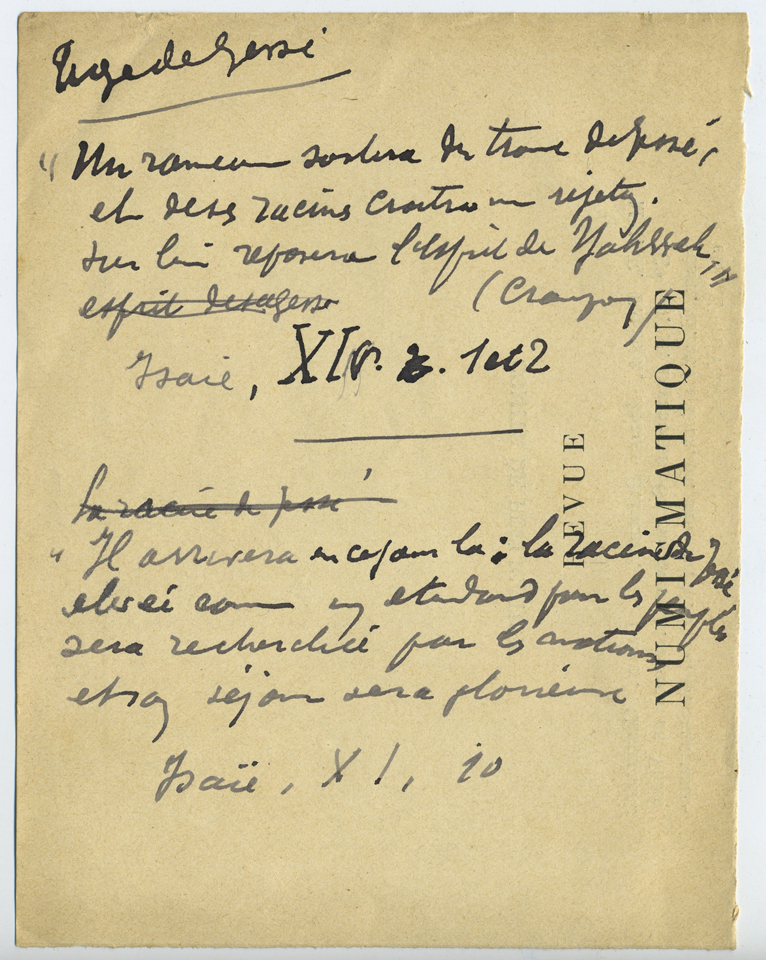 Tige de Jessé
"Un rameau sortira du tronc de Jessé,
et de ses racines croîtra un rejeton.
Sur lui reposera l'Esprit de Yahweh,"
esprit de sagesse (Crampon)
Isaïe, XI v. 1 et 2
La racine de Jessé
"Il arrivera en ce jour là : la racine de Jessé
elevée comme un etendard pour les peuples
sera recherchée par les nations
et son séjour sera glorieux
Isaïe, XI, 10
REVUE
NUMISMATIQUE